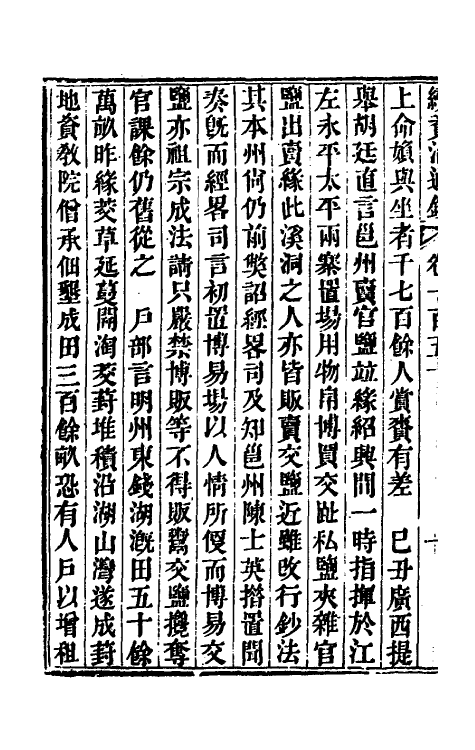 續資治通鑑 卷一百五十
上命頒與坐者千七百餘人賞賚有差 己丑廣西提
舉胡廷直言邕州賣官鹽竝緣紹興間一時指揮於江
左永平太平兩寨置場用物帛博買交趾私鹽夾雜官
鹽出賣緣此溪洞之人亦皆販賣交鹽近雖改行鈔法
其本州尙仍前獘詔經畧司及知邕州陳士英措置聞
奏旣而經畧司言初置博易場以人情所便而博易交
鹽亦祖宗成法請只嚴禁博販等不得販鬻交鹽攙奪
官課餘仍舊從之 戶部言明州東錢湖漑田五十餘
萬畝昨緣茭草延蔓開淘茭葑堆積沿湖山灣遂成葑
地資敎院僧承佃墾成田三百餘畝恐有人戶以增租